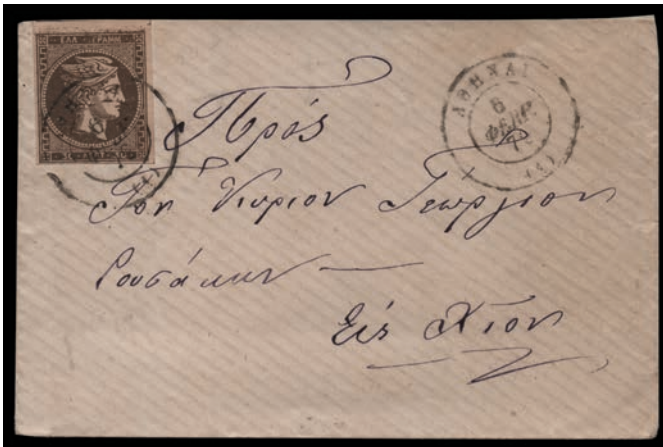 ΕΛΛ. ΓΡΑΜΜ.
ΑΘΗΝΑΙ
6
ΦΕΒΡ.
Πρὸς
Τὸν Κύριον Γεώργιον
Ρουσάκην —
Εἰς Χίον